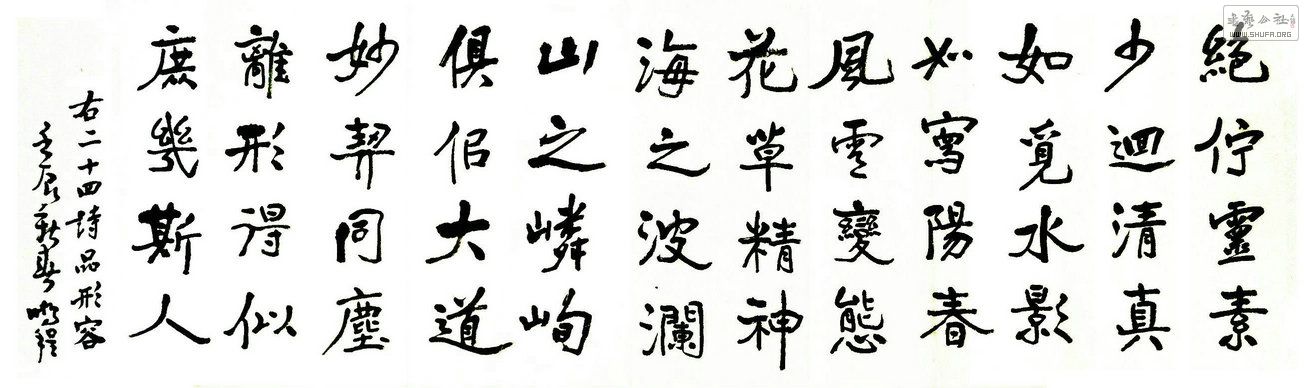 絕佇靈素
少迴清真
如覓水影
如寫陽春
風雲變態
花草精神
海之波瀾
山之嶙峋
俱似大道
妙契同塵
離形得似
庶幾斯人
右二十四詩品形容
壬辰新春
WWW.SHUFA.ORG